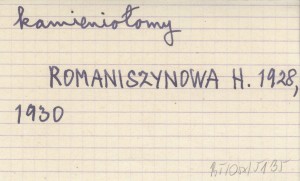 kamieniołomy
ROMANISZYNOWA H. 1928,
1930